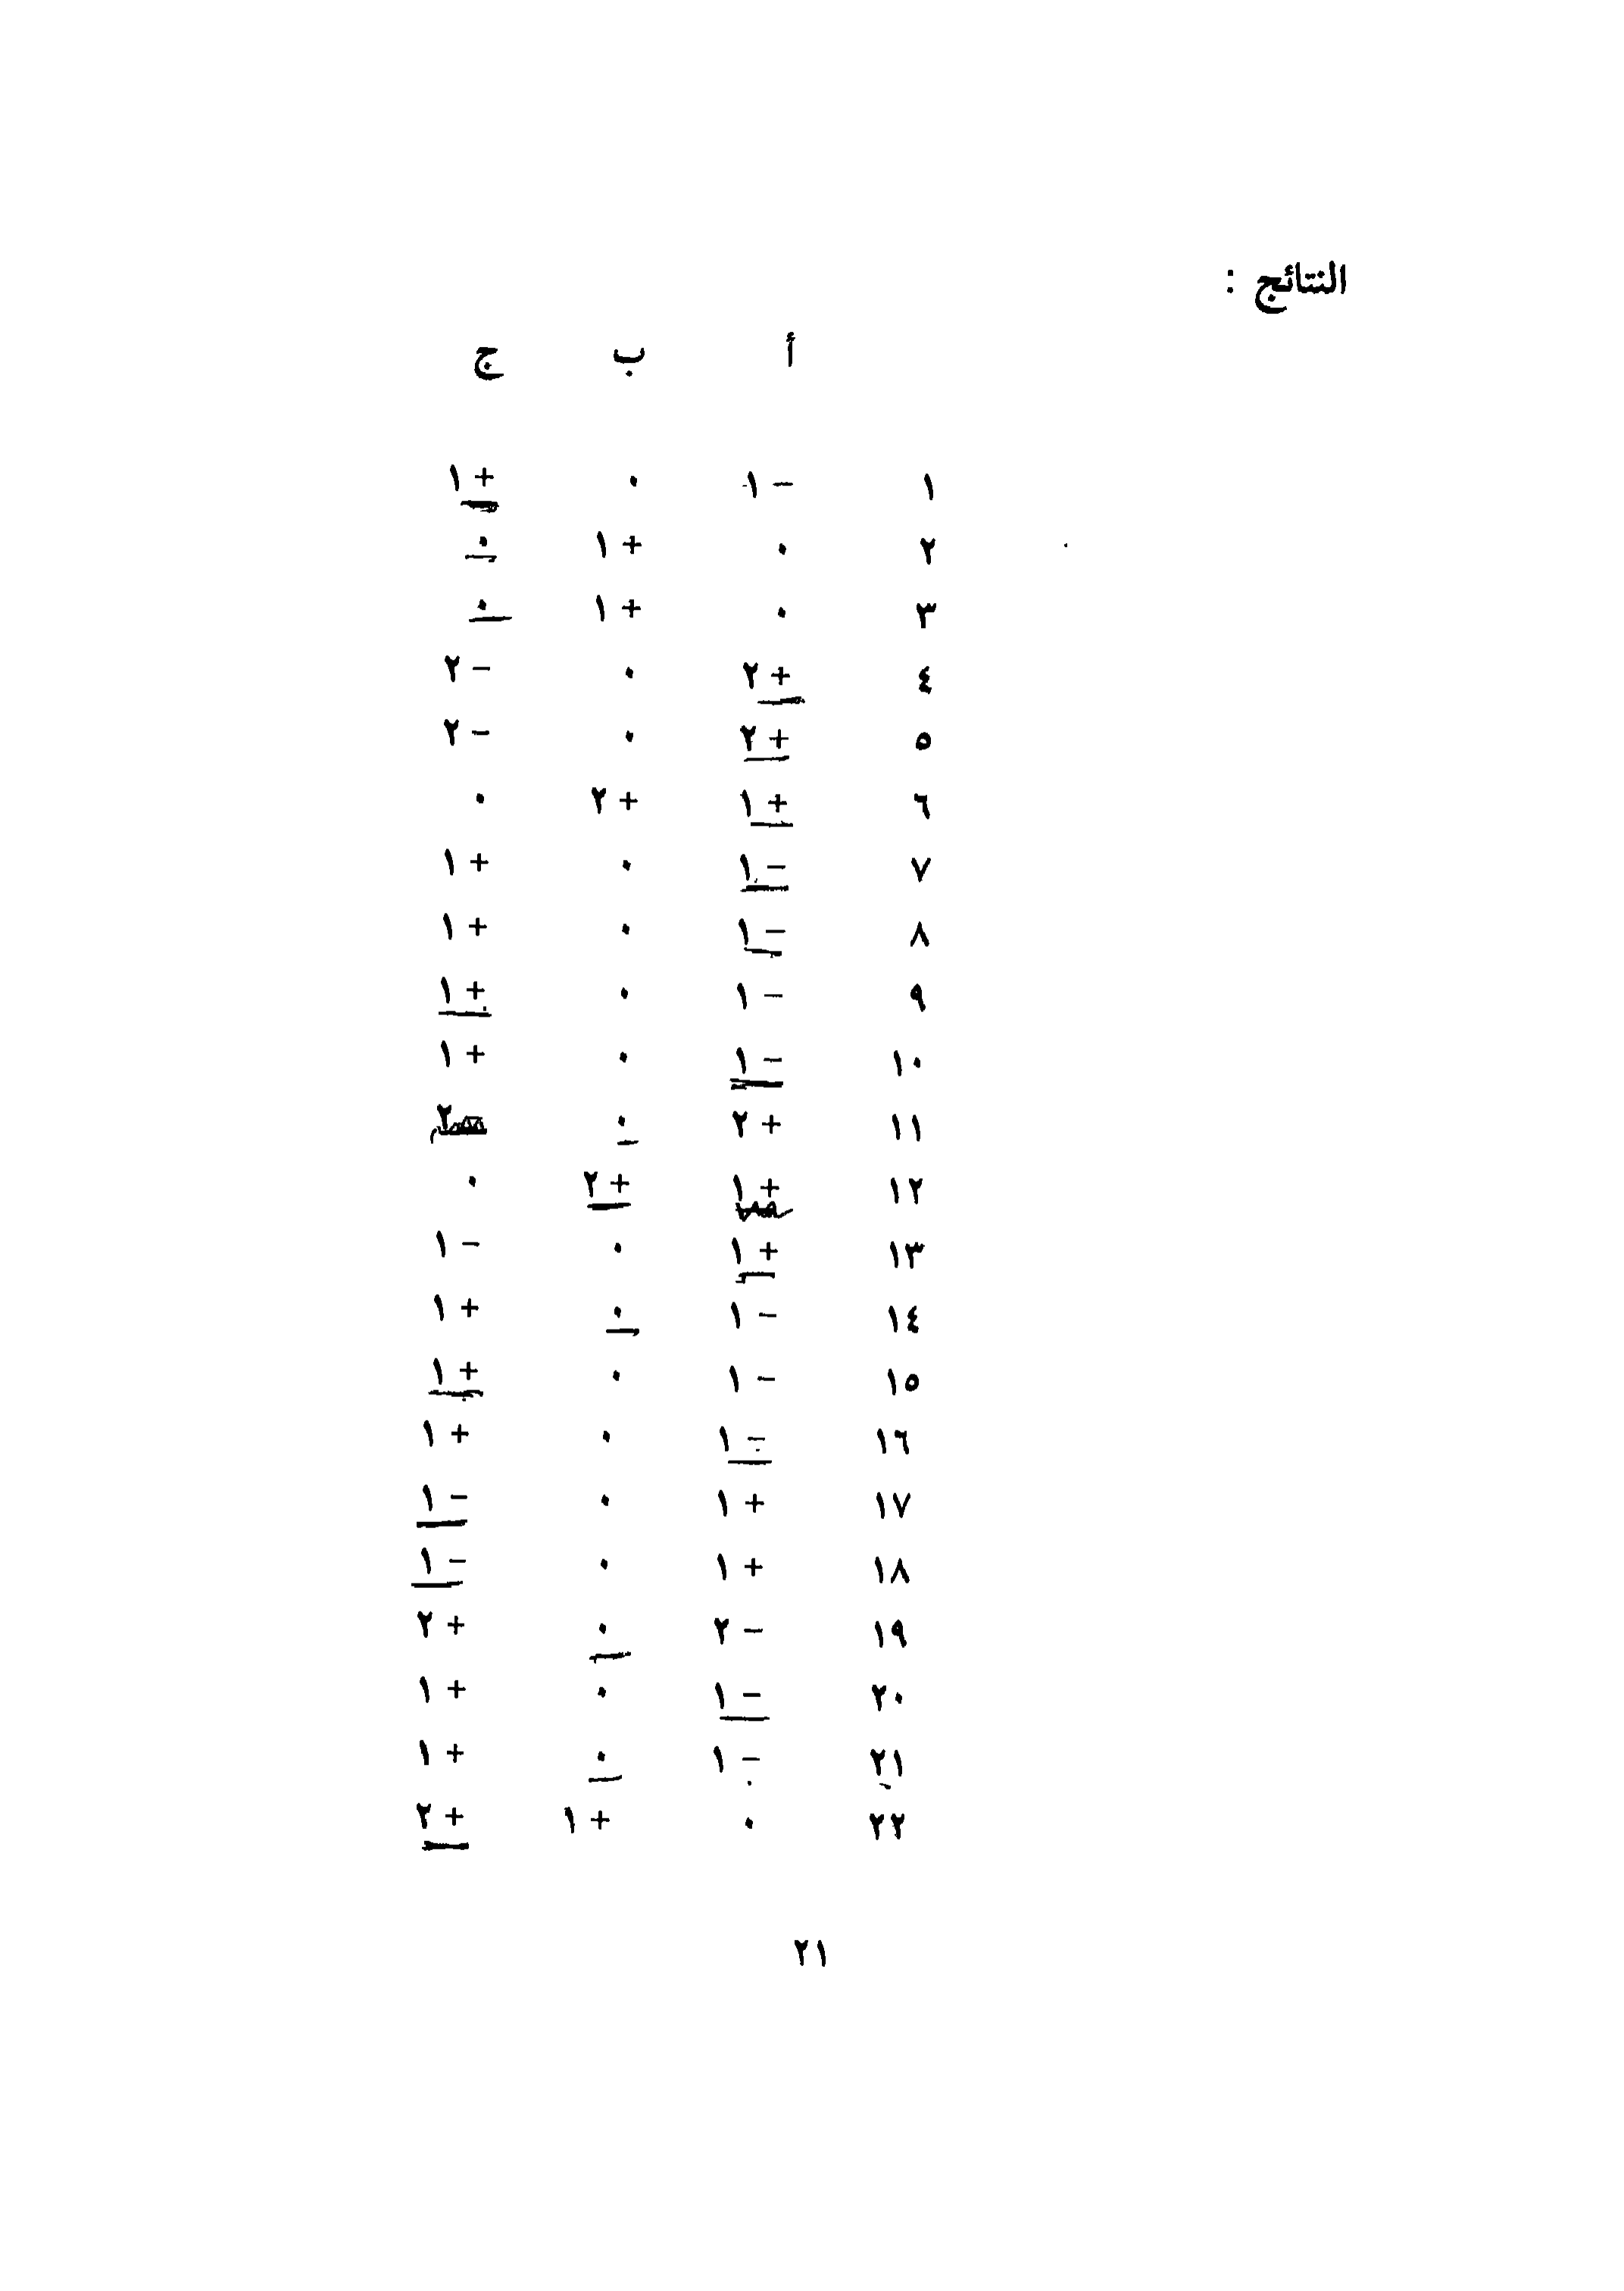 النتائج :
أ ب ج
١ − ١ ٠ + ١
٢ ٠ + ١ ٠
٣ ٠ + ١ ٠
٤ + ٢ ٠ − ٢
٥ + ٢ ٠ − ٢
٦ + ١ + ٢ ٠
٧ − ١ ٠ + ١
٨ − ١ ٠ + ١
٩ − ١ ٠ + ١
١٠ − ١ ٠ + ١
١١ + ٢ ٠ ٢
١٢ + ١ + ٢ ٠
١٣ + ١ ٠ − ١
١٤ − ١ ٠ + ١
١٥ − ١ ٠ + ١
١٦ − ١ ٠ + ١
١٧ + ١ ٠ − ١
١٨ + ١ ٠ − ١
١٩ − ٢ ٠ + ٢
٢٠ − ١ ٠ + ١
٢١ − ١ ٠ + ١
٢٢ ٠ + ١ + ٢
٢١